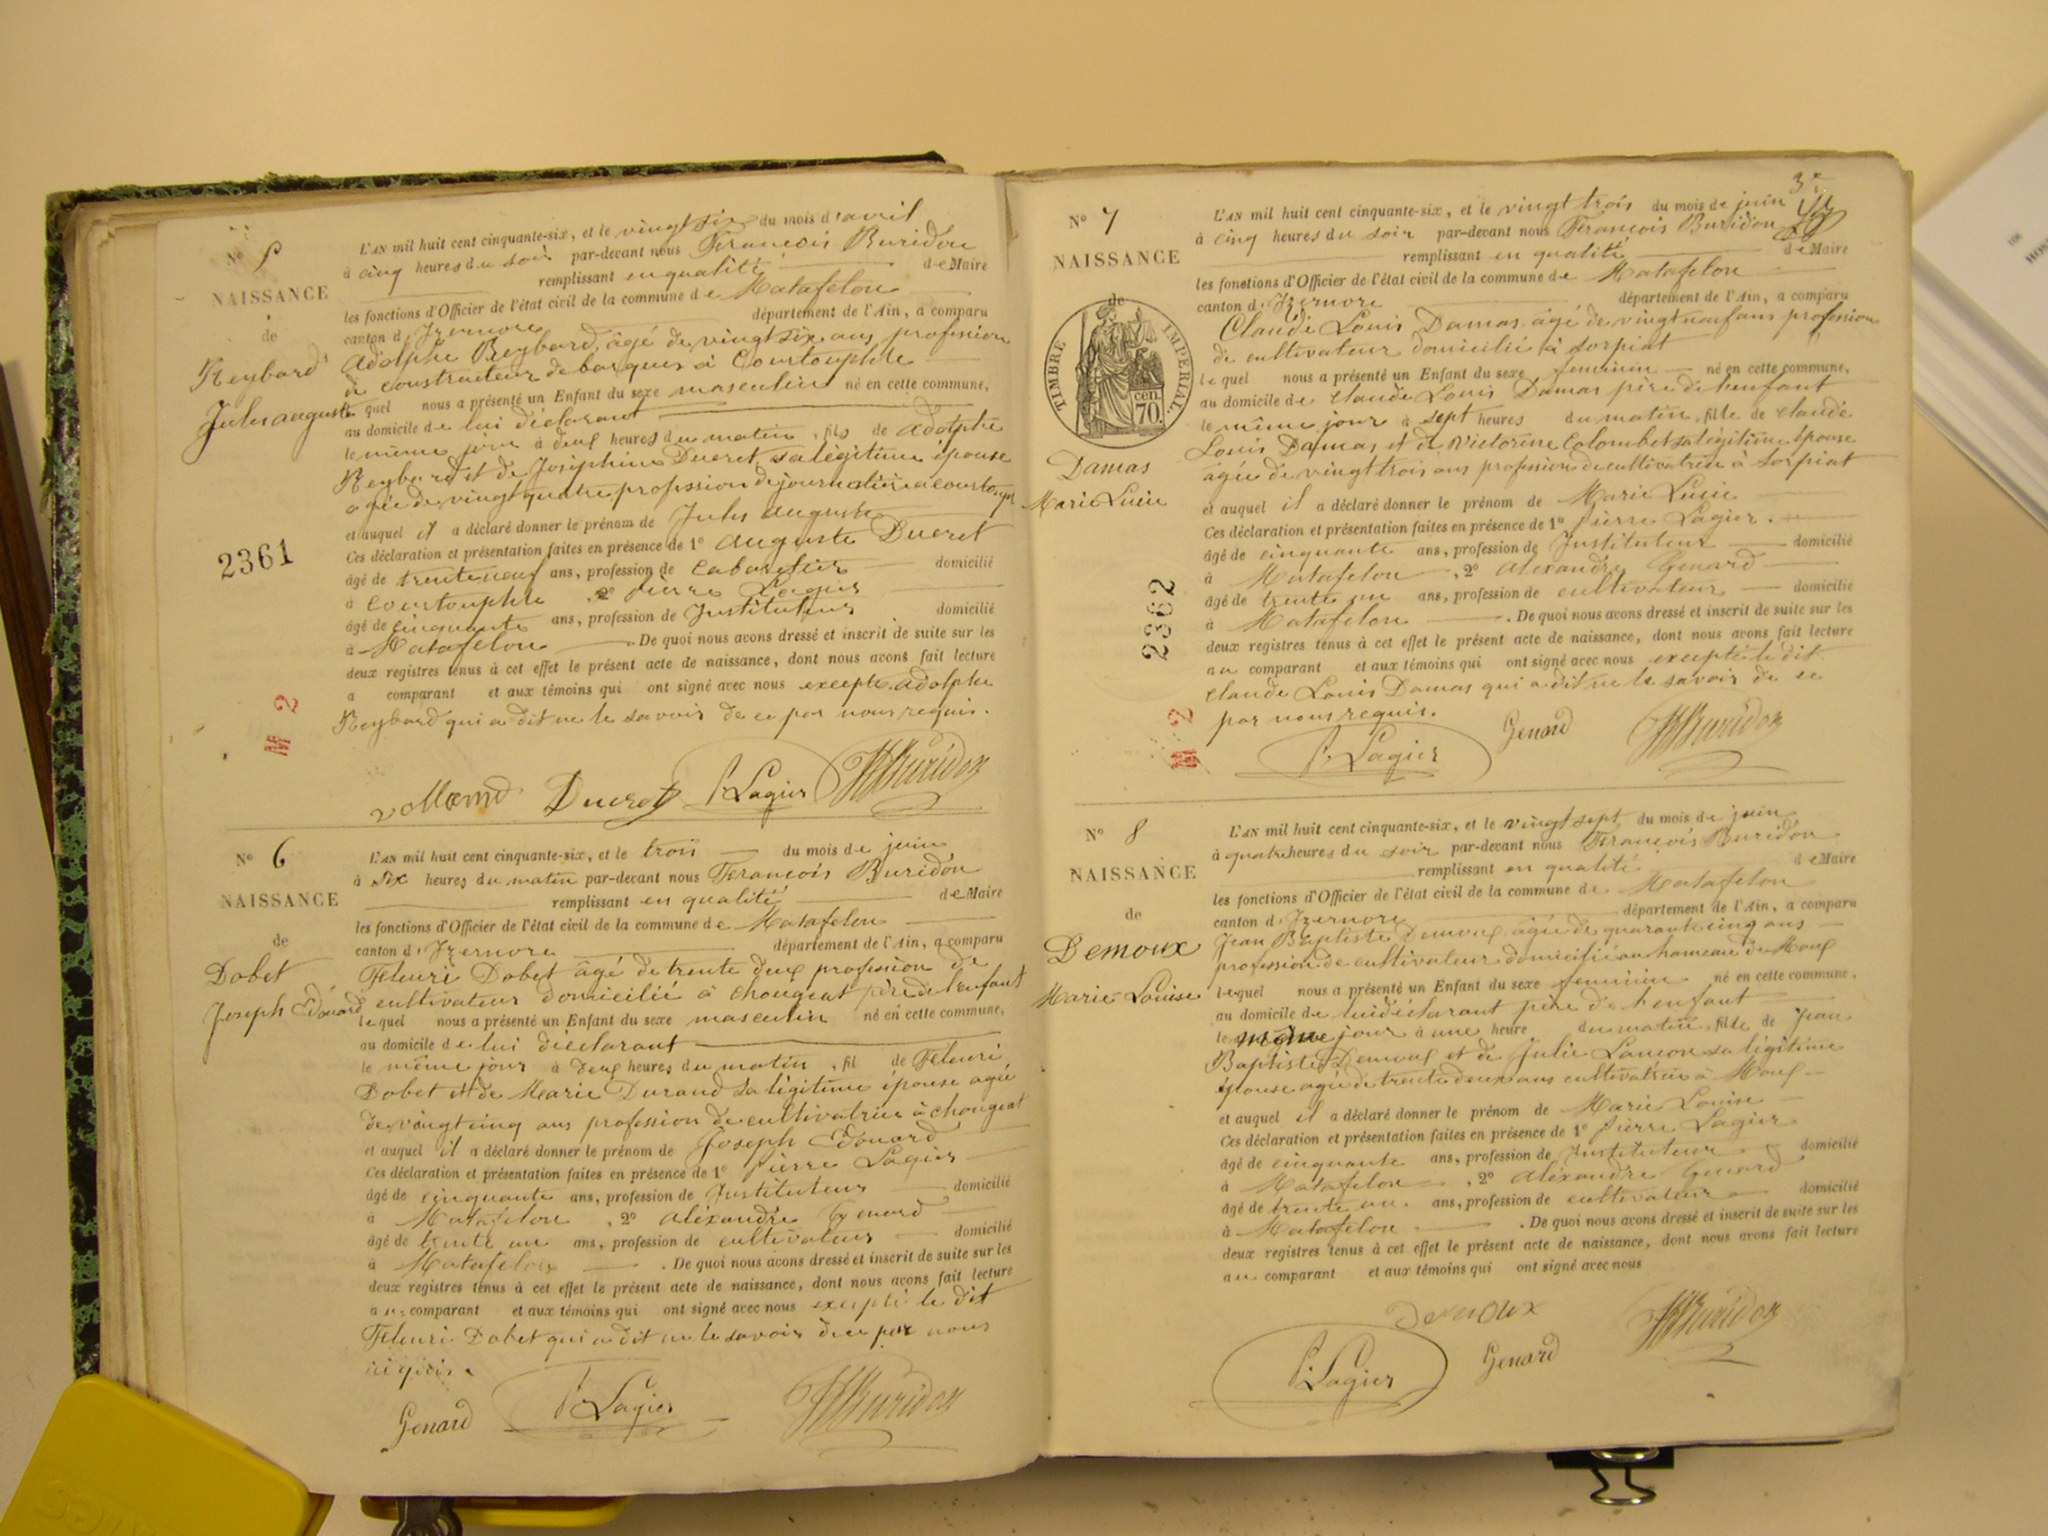 N° 5
NAISSANCE
de
Reybard
Jules auguste
2361
M 2
L'AN mil huit cent cinquante-six, et le vingt six du mois d'avril
à cinq heures du soir par-devant nous François Buridon
remplissant en qualité de Maire
les fonctions d'Officier de l'état civil de la commune de Matafelon
canton d'Izernore département de l'Ain, a comparu
Adolphe Reybard, âgé de vingt six ans profession
de constructeur de barques à Coustouphle
lequel nous a présenté un Enfant du sexe masculin né en cette commune,
au domicile de lui déclarant
le même jour à deux heures du matin, fils de Adolphe
Reybard et de Joséphine Ducret, sa légitime épouse
agée de vingt quatre profession de journalière à
et auquel il a déclaré donner le prénom de Jules auguste
Ces déclaration et présentation faites en présence de 1° auguste Ducret
âgé de trente neuf ans, profession de Cabaretier domicilié
à Coustouphle 2° Pierre Lagier
âgé de cinquante ans, profession de Instituteur domicilié
à Matafelon. De quoi nous avons dressé et inscrit de suite sur les
deux registres tenus à cet effet le présent acte de naissance, dont nous avons fait lecture
a comparant et aux témoins qui ont signé avec nous excepté adolphe
Reybard qui a dit ne le savoir de ce par nous requis.
Ducret P. Lagier Buridon
N° 6
NAISSANCE
de
Dobet
Joseph Edouard
L'AN mil huit cent cinquante-six, et le trois du mois de juin
à six heures du matin par-devant nous François Buridon
remplissant en qualité de Maire
les fonctions d'Officier de l'état civil de la commune de Matafelon
canton d'Izernore département de l'Ain, a comparu
Fleuri Dobet âgé de trente deux profession de
cultivateur domicilié à Chougeat père de l'enfant
lequel nous a présenté un Enfant du sexe masculin né en cette commune,
au domicile de lui déclarant
le même jour à deux heures du matin, fil de Fleuri
Dobet et de Marie Durand sa légitime épouse agée
de vingt cinq ans profession de cultivatrice à chougeat
et auquel il a déclaré donner le prénom de Joseph Edouard
Ces déclaration et présentation faites en présence de 1° Pierre Lagier
âgé de cinquante ans, profession de Instituteur domicilié
à Matafelon, 2° aléxandre Genard
âgé de trente un ans, profession de cultivateur domicilié
à Matafelon. De quoi nous avons dressé et inscrit de suite sur les
deux registres tenus à cet effet le présent acte de naissance, dont nous avons fait lecture
au comparant et aux témoins qui ont signé avec nous excepté le dit
Fleuri Dobet qui a dit ne le savoir de ce par nous
requis.
Genard P. Lagier Buridon
N° 7
NAISSANCE
de
TIMBRE IMPERIAL
cen. 70
Damas
Marie Lucie
2362
M 2
L'AN mil huit cent cinquante-six, et le vingt trois du mois de juin
à cinq heures du soir par-devant nous François Buridon
remplissant en qualité de Maire
les fonctions d'Officier de l'état civil de la commune de Matafelon
canton d'Izernore département de l'Ain, a comparu
Claude Louis Damas âgé de vingt neuf ans profession
de cultivateur domicilié à Sorpiat
lequel nous a présenté un Enfant du sexe feminin né en cette commune,
au domicile de Claude Louis Damas père de l'enfant
le même jour à sept heures du matin, fille de claude
Louis Damas et de Victorine Colombet sa légitime épouse
agée de vingt trois ans profession de cultivatrice à Sorpiat
et auquel il a déclaré donner le prénom de Marie Lucie
Ces déclaration et présentation faites en présence de 1° Pierre Lagier.
âgé de cinquante ans, profession de Instituteur domicilié
à Matafelon, 2° alexandre Genard
âgé de trente un ans, profession de cultivateur domicilié
à Matafelon. De quoi nous avons dressé et inscrit de suite sur les
deux registres tenus à cet effet le présent acte de naissance, dont nous avons fait lecture
au comparant et aux témoins qui ont signé avec nous excepté le dit
claude Louis Damas qui a dit ne le savoir de ce
par nous requis.
P. Lagier Genard Buridon
N° 8
NAISSANCE
de
Demoux
Marie Louise
L'AN mil huit cent cinquante-six, et le vingt sept du mois de juin
à quatre heures du soir par-devant nous François Buridon
remplissant en qualité de Maire
les fonctions d'Officier de l'état civil de la commune de Matafelon
canton d'Izernore département de l'Ain, a comparu
Jean Baptiste Demoux agée de quarante cinq ans
profession de cultivateur domicilié au hameau de Moux
lequel nous a présenté un Enfant du sexe feminin né en cette commune,
au domicile de lui déclarant père de l'enfant
le même jour à une heure du matin, fille de Jean
Baptiste Demoux et de Julie sa légitime
épouse agée de trente deux ans cultivatrice à Moux
et auquel il a déclaré donner le prénom de Marie Louise
Ces déclaration et présentation faites en présence de 1° Pierre Lagier
âgé de cinquante ans, profession de Instituteur domicilié
à Matafelon, 2° aléxandre Genard
âgé de trente un ans, profession de cultivateur domicilié
à Matafelon. De quoi nous avons dressé et inscrit de suite sur les
deux registres tenus à cet effet le présent acte de naissance, dont nous avons fait lecture
au comparant et aux témoins qui ont signé avec nous
Demoux
P. Lagier Genard Buridon